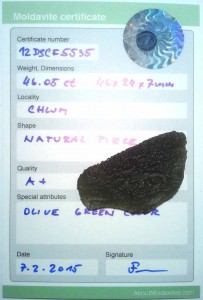 Moldavite certificate
Certificate number
12DSCF5535
Weight, Dimensions
46.05 ct 46x24x7mm
Locality
CHLUM
Shape
NATURAL PIECE
Quality
A+
Special attributes
OLIVE GREEN COLOR
Date
Signature
7.2.2015